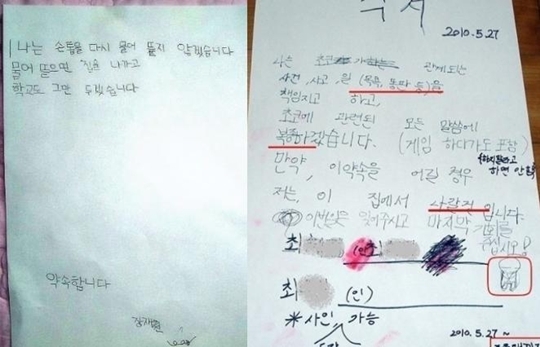 나는 손톱을 다시 물어 뜯지 않겠습니다
물어 뜯으면 집을 나가고
학교도 그만 두겠습니다
약속합니다
각서
2010.5.27
나는 초코 관계되는
사건, 사고, 일 (목욕, 똥판 등)을
책임지고 하고,
초코에 관련된 모든 말씀에
복종하겠습니다. (게임 하다가도 포함)
만약, 이약속을 어린 경우
하면 안함
저는, 이 집에서 사람 입니다.
이번일은 잊어주시고 마지막 기회를
주십시오!
최
최 (인)
*사인 가능
도장
2010.5.27 ~